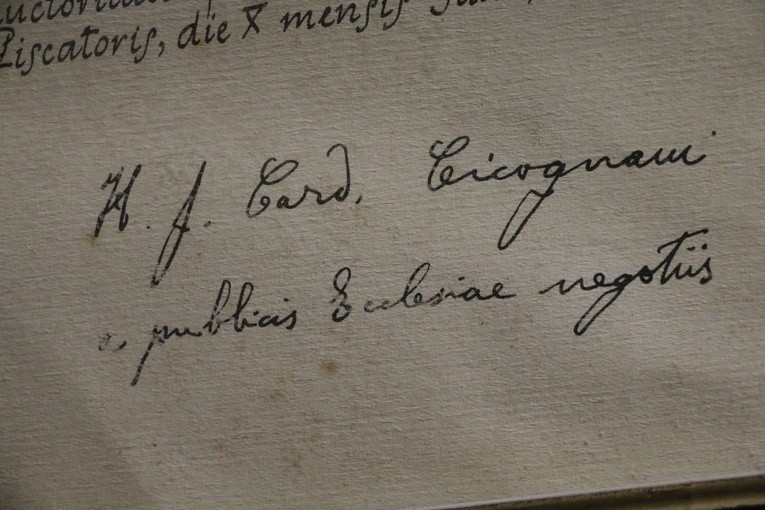 Piscatoris, die X mensis
H. J. Card. Cicognani
a publicis Ecclesiae negotiis